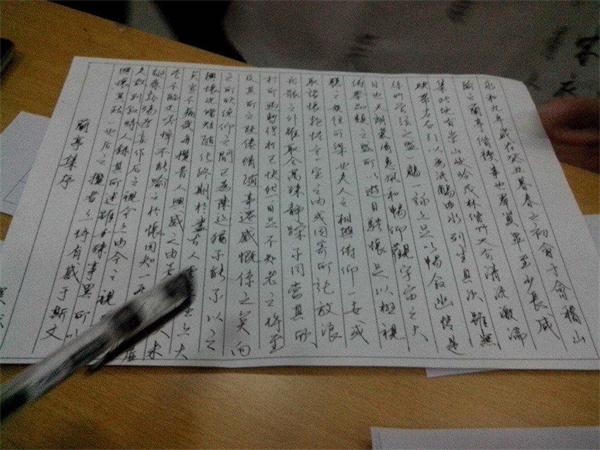 永和九年歲在癸丑暮春之初會于會稽山
陰之蘭亭修禊事也群賢畢至少長咸
集此地有崇山峻嶺茂林修竹又有清流激湍
映帶左右引以為流觴曲水列坐其次雖無
絲竹管弦之盛一觴一詠亦足以暢敘幽情是
日也天朗氣清惠風和暢仰觀宇宙之大
俯察品類之盛所以遊目騁懷足以極視
聽之娛信可樂也夫人之相與俯仰一世或
取諸懷抱悟言一室之內或因寄所託放浪
形骸之外雖取舍萬殊靜躁不同當其欣
於所遇暫得於己快然自足不知老之將至
及其所之既倦情隨事遷感慨係之矣向
之所欣俛仰之間已為陳跡猶不能不以之
興懷況修短隨化終期於盡古人
大
矣豈不痛哉每攬昔人興感之由
未
嘗不臨文嗟悼不能喻之於懷固知一
后之視今亦由今之視
夫故列敘時人錄其所述雖世殊事異所以
興懷其致一也后之攬者亦將有感于斯文
蘭亭集序